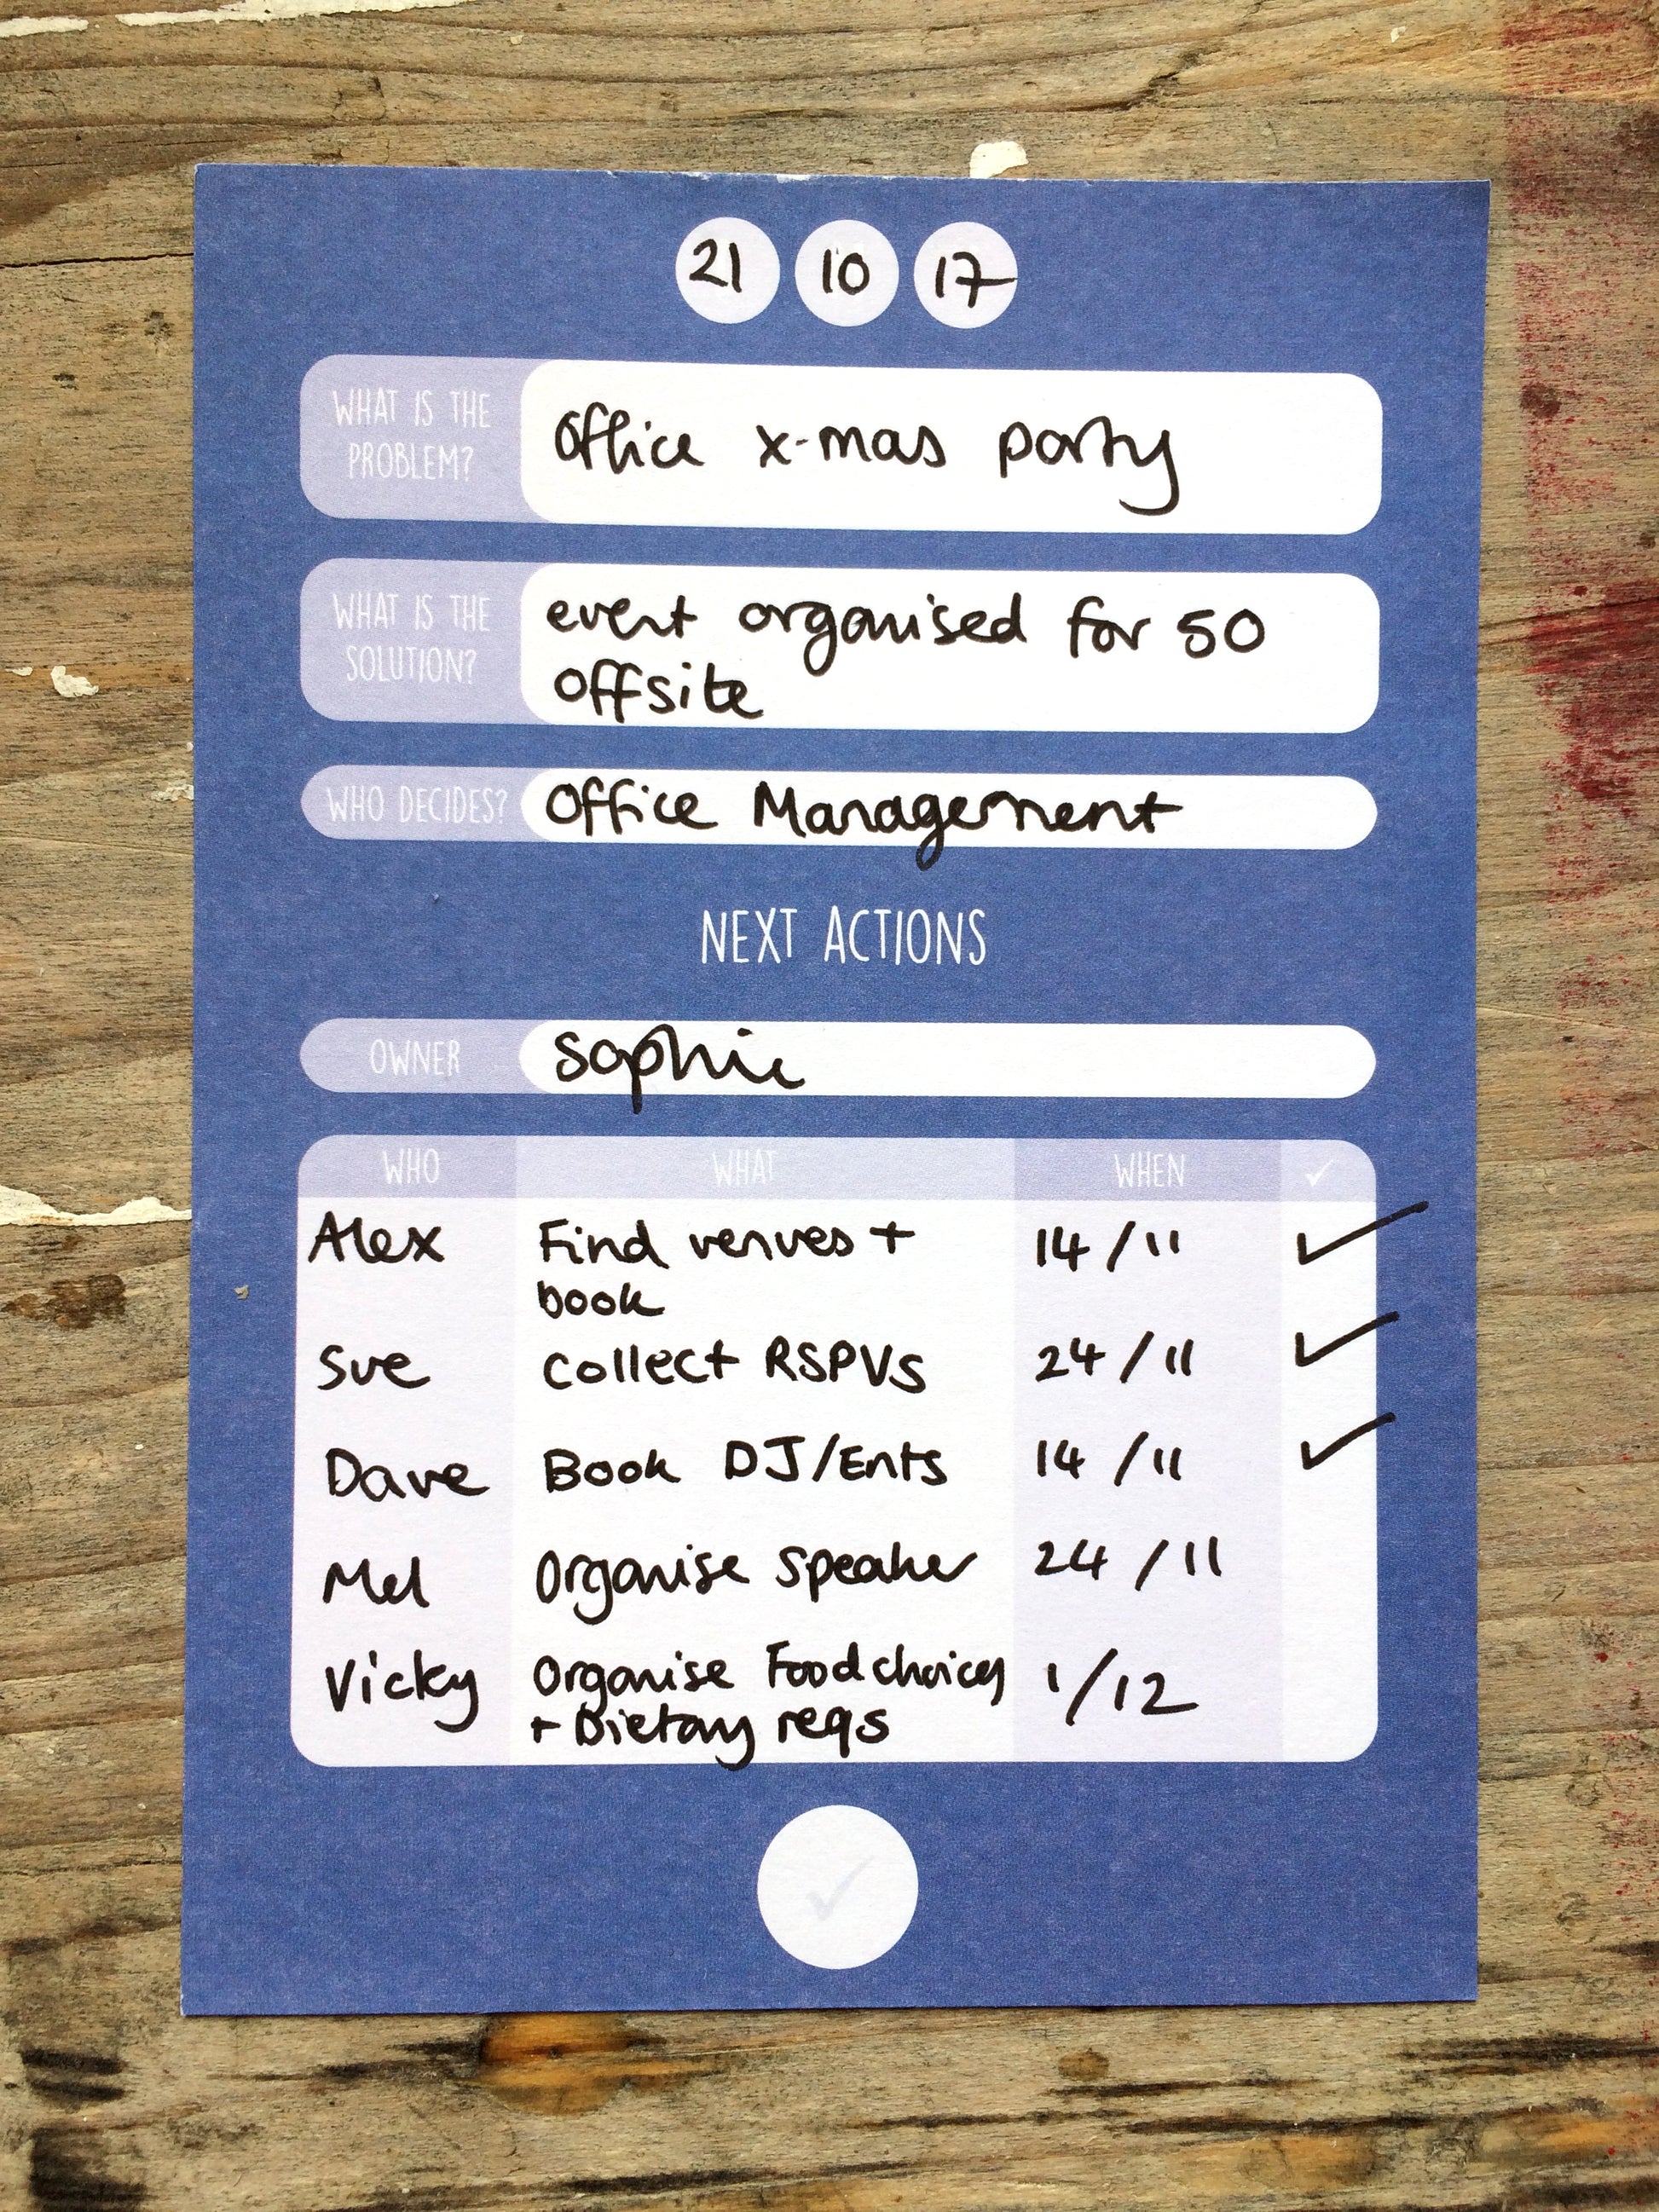 21 10 17
WHAT IS THE
PROBLEM?
Office x-mas party
WHAT IS THE
SOLUTION?
event organised for 50
offsite
WHO DECIDES? Office Management
NEXT ACTIONS
OWNER Sophie
WHO WHAT WHEN ✓
Alex Find venues + 14/11 ✓
book
Sue Collect RSPVs 24/11 ✓
Dave Book DJ/Ents 14/11 ✓
Mel Organise Speaker 24/11
Vicky Organise Food choices 1/12
+ Dietary reqs
✓